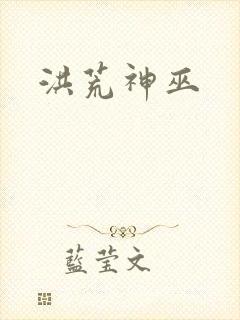 洪荒神巫
藍莹文